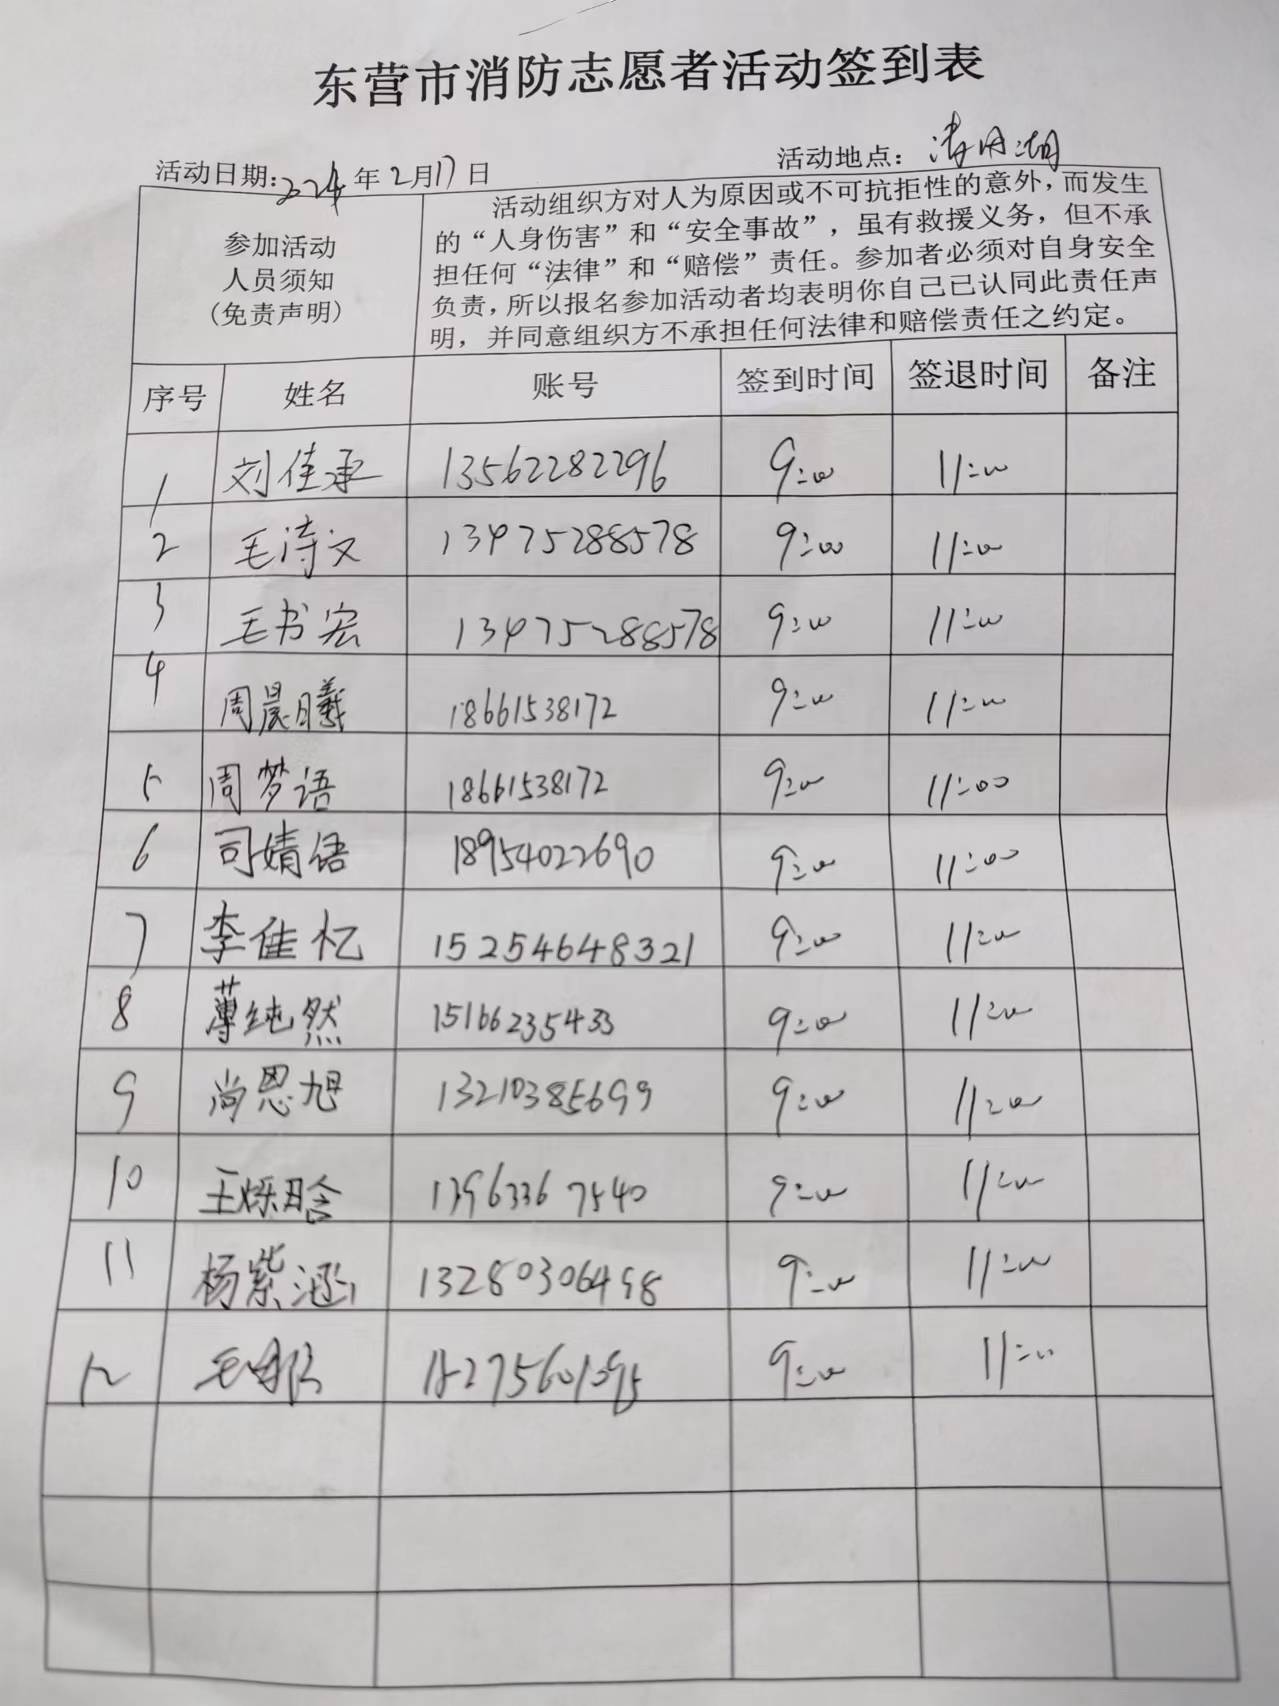 东营市消防志愿者活动签到表
活动日期:2024年2月17日 活动地点:清风湖
参加活动
人员须知
(免责声明)
活动组织方对人为原因或不可抗拒性的意外,而发生
的“人身伤害”和“安全事故”,虽有救援义务,但不承
担任何“法律”和“赔偿”责任。参加者必须对自身安全
负责,所以报名参加活动者均表明你自己已认同此责任声
明,并同意组织方不承担任何法律和赔偿责任之约定。
序号 姓名 账号 签到时间 签退时间 备注
1 刘佳承 13562282296 9:00 11:00
2 毛诗文 13475288578 9:00 11:00
3 毛书宏 13475288578 9:00 11:00
4 周晨曦 18661538172 9:00 11:00
5 周梦语 18661538172 9:00 11:00
6 司婧语 18954022690 9:00 11:00
7 李佳忆 15254648321 9:00 11:00
8 薄纯然 15166235433 9:00 11:00
9 尚恩旭 13210385699 9:00 11:00
10 王烁晗 13963367540 9:00 11:00
11 杨紫涵 13280306498 9:00 11:00
12 毛 9:00 11:00